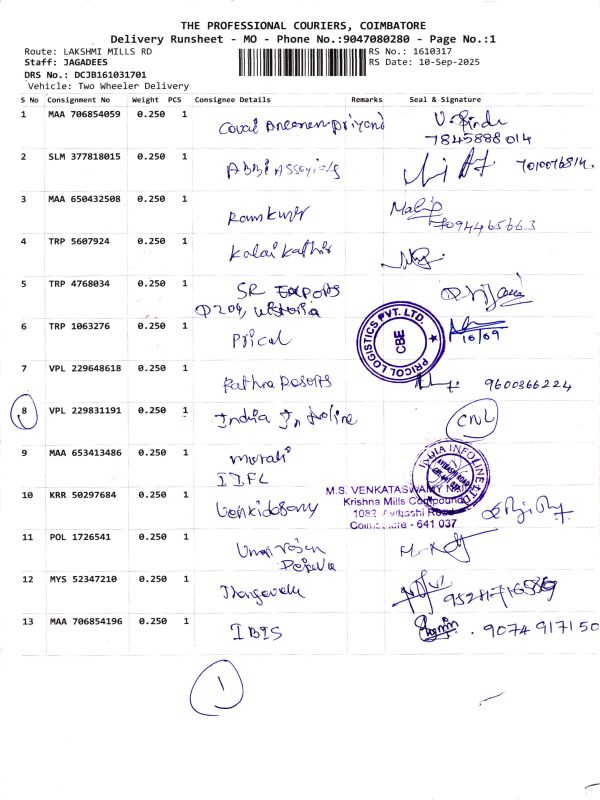 THE PROFESSIONAL COURIERS, COIMBATORE
Delivery Runsheet - MO - Phone No.:9047080280 - Page No.:1
Route: LAKSHMI MILLS RD RS No.: 1610317
Staff: JAGADEES RS Date: 10-Sep-2025
DRS No.: DCJB161031701
Vehicle: Two Wheeler Delivery
S No Consignment No Weight PCS Consignee Details Remarks Seal & Signature
1 MAA 706854059 0.250 1
7845888014
2 SLM 377818015 0.250 1
3 MAA 650432508 0.250 1 Ramkumar
7094465663
4 TRP 5607924 0.250 1 Kalai Kathir
5 TRP 4768034 0.250 1 SR Exports
6 TRP 1063276 0.250 1 Prical
PRICOL LOGISTICS PVT. LTD.
CBE
10/09
7 VPL 229648618 0.250 1 Rathna 9600366224
8 VPL 229831191 0.250 1 India Infoline CNL
9 MAA 653413486 0.250 1 Murali
IIFL
INDIA INFOLINE LTD
10 KRR 50297684 0.250 1 Venkidasamy
M.S. VENKATASWAMY
Krishna Mills Compound
1082 Avinashi Road
Coimbatore - 641 037
11 POL 1726541 0.250 1
12 MYS 52347210 0.250 1 Thangavelu
13 MAA 706854196 0.250 1 IBIS 9074917150
1